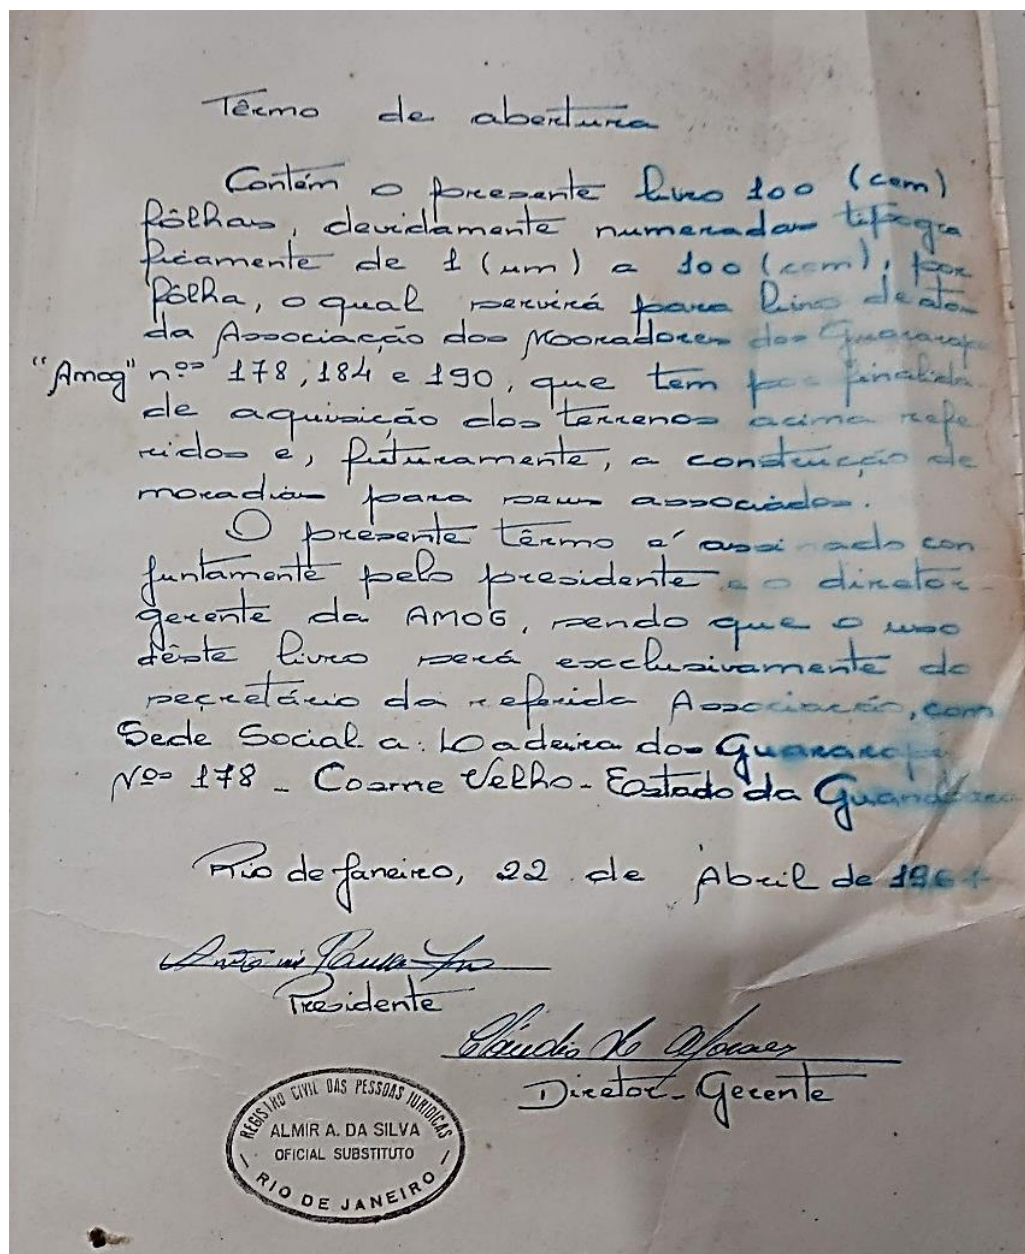 Têrmo de abertura
Contém o presente livro 100 (cem)
fôlhas, devidamente numeradas tipogra
ficamente de 1 (um) a 100 (cem), por
fôlha, o qual servirá para livro de atas
da Associação dos Moradores dos Guararapes
"Amog" nºs 178, 184 e 190, que tem por finalida
de aquisição dos terrenos acima refe
ridos e, futuramente, a construção de
moradias para seus associados.
O presente têrmo é assinado con
juntamente pelo presidente e o diretor-
gerente da AMOG, sendo que o uso
dêste livro será exclusivamente do
secretário da referida Associação, com
Sede Social a: Ladeira dos Guararapes
Nºs 178 - Cosme Velho - Estado da Guanabara
Rio de Janeiro, 22 de Abril de
Presidente
Cláudio de Moraes
Diretor-Gerente
REGISTRO CIVIL DAS PESSOAS JURIDICAS
ALMIR A. DA SILVA
OFICIAL SUBSTITUTO
- RIO DE JANEIRO -